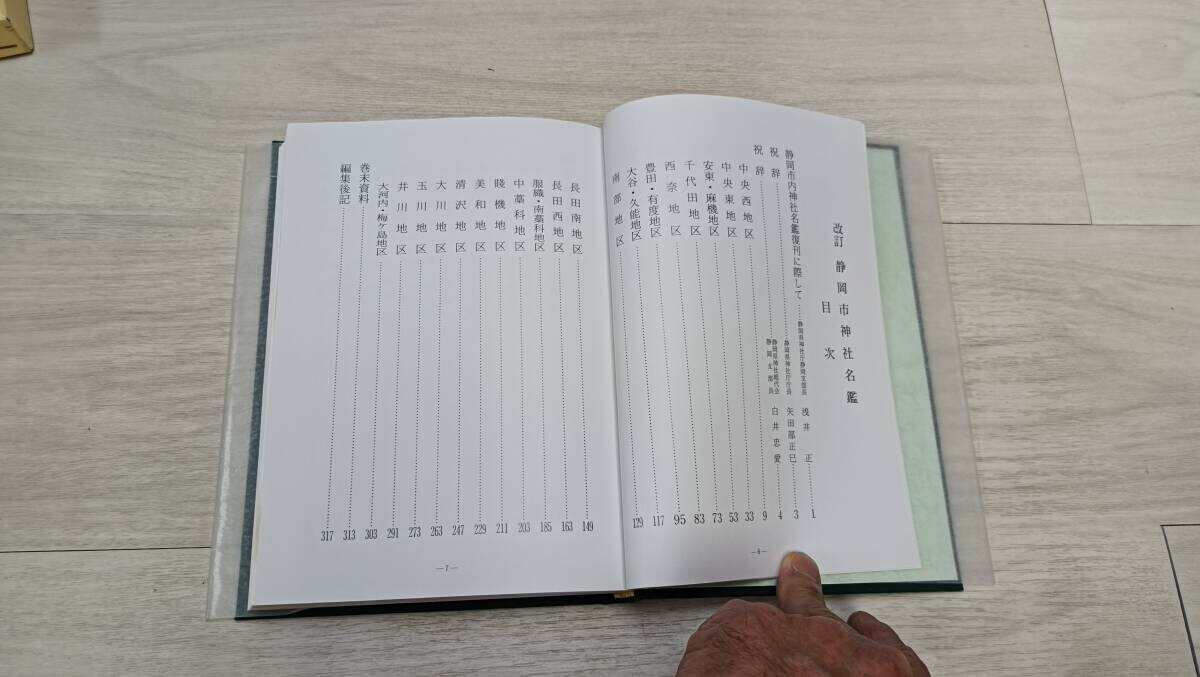 改訂 静岡市神社名鑑
目次
静岡市内神社名鑑復刊に際して……静岡県神社庁静岡支部長 浅井 正……1
祝辞……静岡県神社庁庁長 矢田部正巳……3
祝辞……静岡県神社総代会静岡支部長 白井忠愛……4
中央西地区……9
中央東地区……33
安東・麻機地区……53
千代田地区……73
西奈地区……83
豊田・有度地区……95
大谷・久能地区……117
南部地区……129
—6—
長田南地区……149
長田西地区……163
服織・南藁科地区……185
中藁科地区……203
賤機地区……211
美和地区……229
清沢地区……247
大川地区……263
玉川地区……273
井川地区……291
大河内・梅ケ島地区……303
巻末資料……313
編集後記……317
—7—